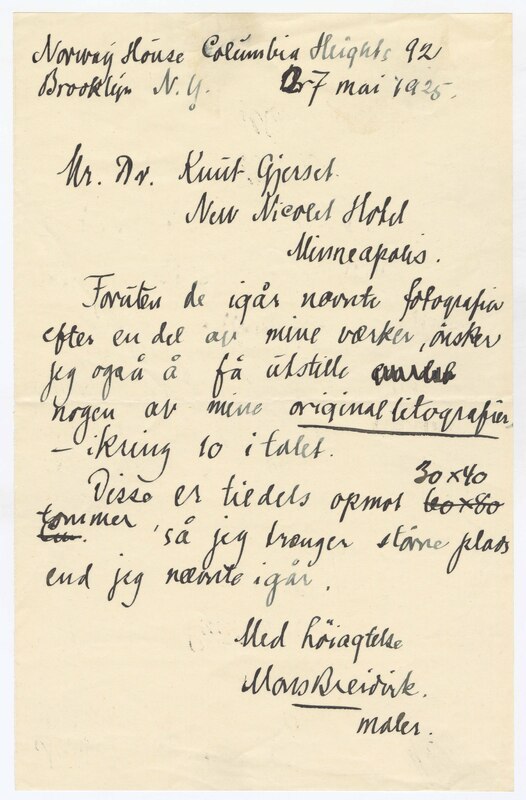 Norway House Columbia Heights 92
Brooklyn N.Y. 27 mai 1925.
Mr. Dr. Knut Gjerset
New Nicolet Hotel
Minneapolis.
Foruten de igår nævnte fotografier
efter en del av mine værker, ønsker
jeg også å få utstille
nogen av mine original litografier
– ikring 10 i tallet.
Disse er tildels opmot 60×80 30×40
cm. tommer, så jeg trænger større plads
end jeg nævnte igår.
Med høiagtelse
Mons Breidvik.
maler.